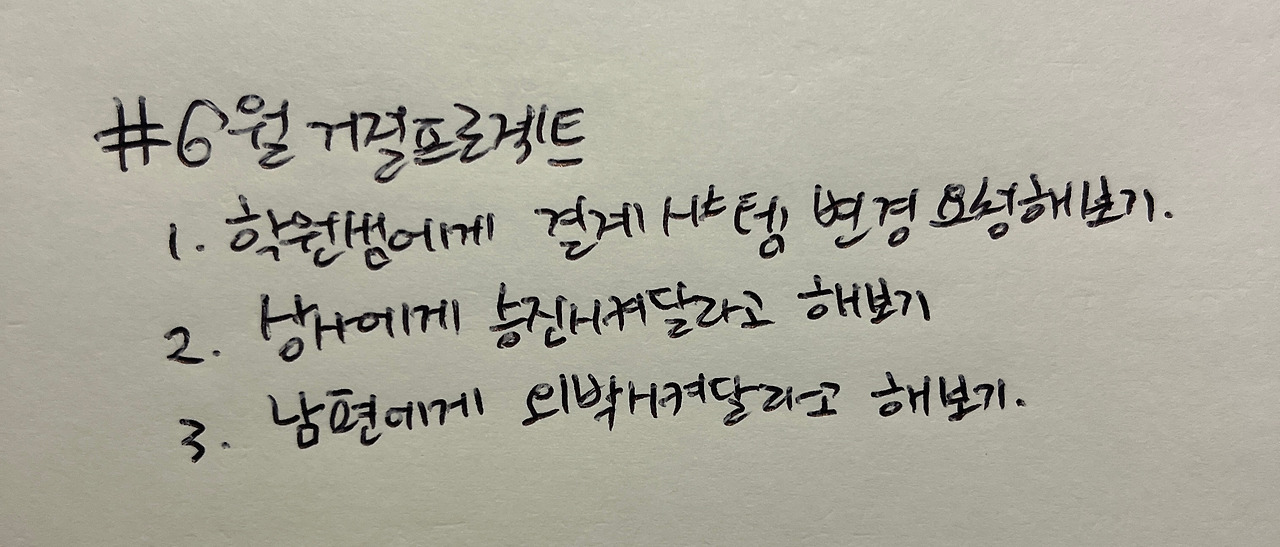 #6월 거절프로젝트
1. 학원쌤에게 결제시스템 변경 요청해보기.
2. 상사에게 승진시켜달라고 해보기
3. 남편에게 외박시켜달라고 해보기.